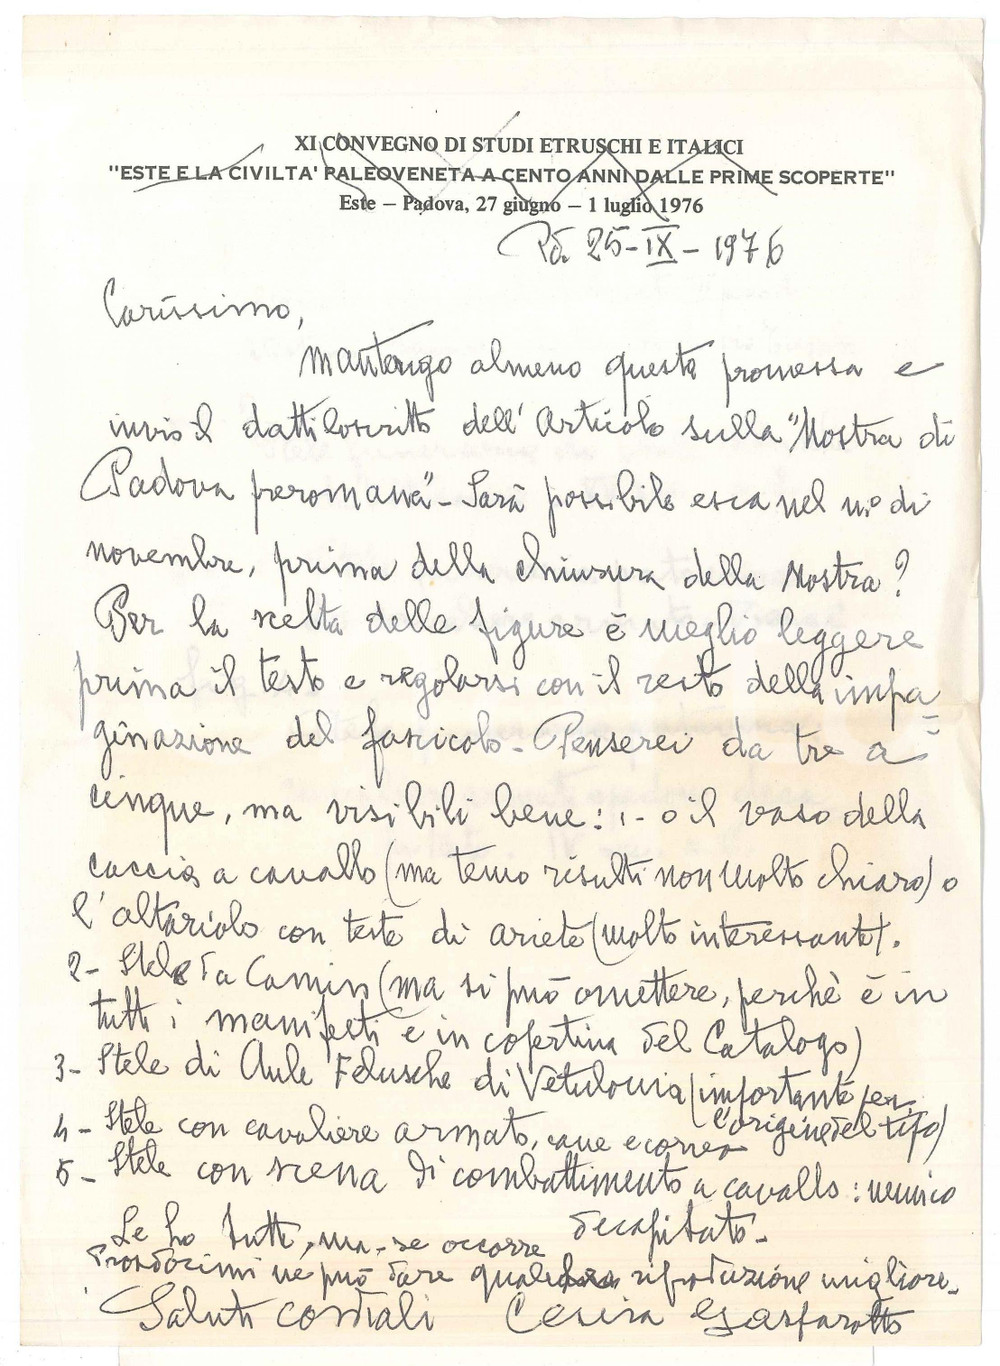 XI CONVEGNO DI STUDI ETRUSCHI E ITALICI
"ESTE E LA CIVILTA' PALEOVENETA A CENTO ANNI DALLE PRIME SCOPERTE"
Este – Padova, 27 giugno – 1 luglio 1976
Pd. 25-IX-1976
Carissimo,
mantengo almeno questa promessa e
invio il dattiloscritto dell'Articolo sulla "Mostra di
Padova preromana" - Sarà possibile esca nel n.° di
novembre, prima della chiusura della Mostra?
Per la scelta delle figure è meglio leggere
prima il testo e regolarsi con il resto della impa=
ginazione del fascicolo - Penserei da tre a
cinque, ma visibili bene: 1- o il vaso della
caccia a cavallo (ma temo risulti non molto chiaro) o
l'altariolo con teste di ariete (molto interessante).
2- Stele da Camin (ma si può omettere, perchè è in
tutti i manifesti e in copertina del Catalogo)
3- Stele di Aule Feluske di Vetulonia (importante per
l'origine del tipo)
4- Stele con cavaliere armato, cane e corvo
5- Stele con scena di combattimento a cavallo: nemico
decapitato -
Le ho tutte, ma se occorre
Prosdocimi ne può dare qualche riproduzione migliore -
Saluti cordiali Cesira Gasparotto